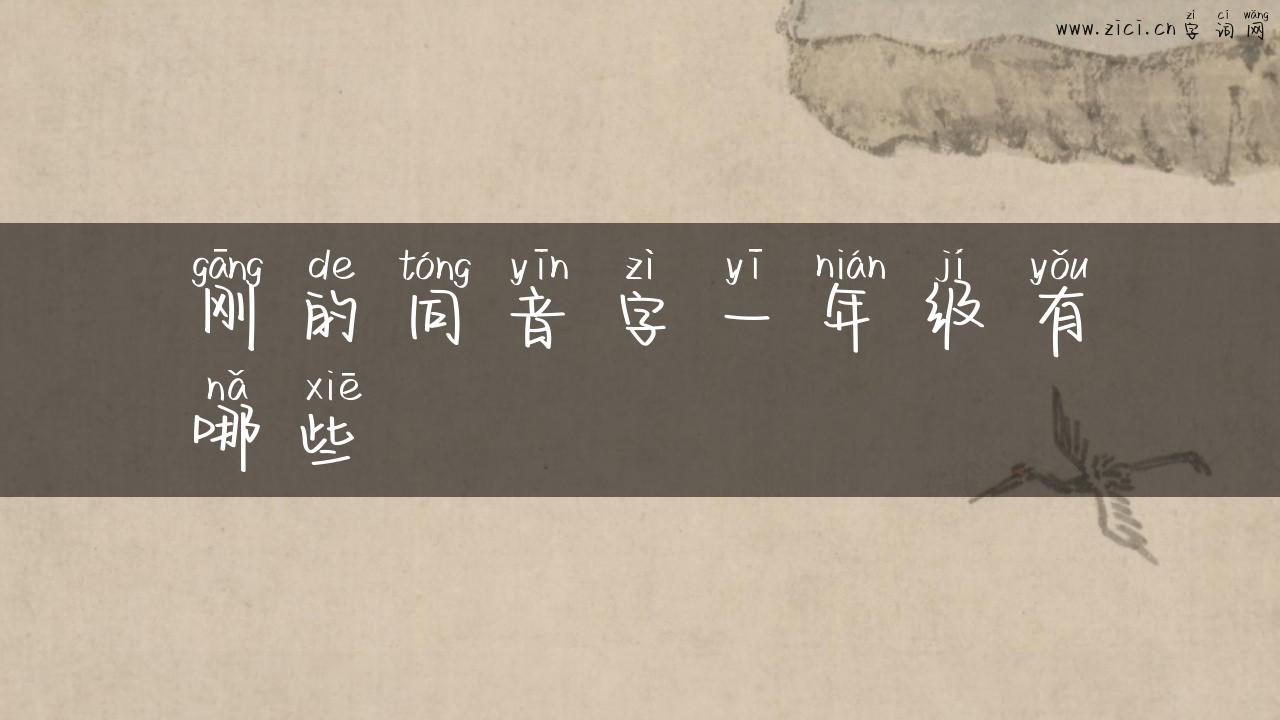 zì cí wǎng
www.zici.cn 字词网
gāng de tóng yīn zì yī nián jí yǒu
刚的同音字一年级有
nǎ xiē
哪些